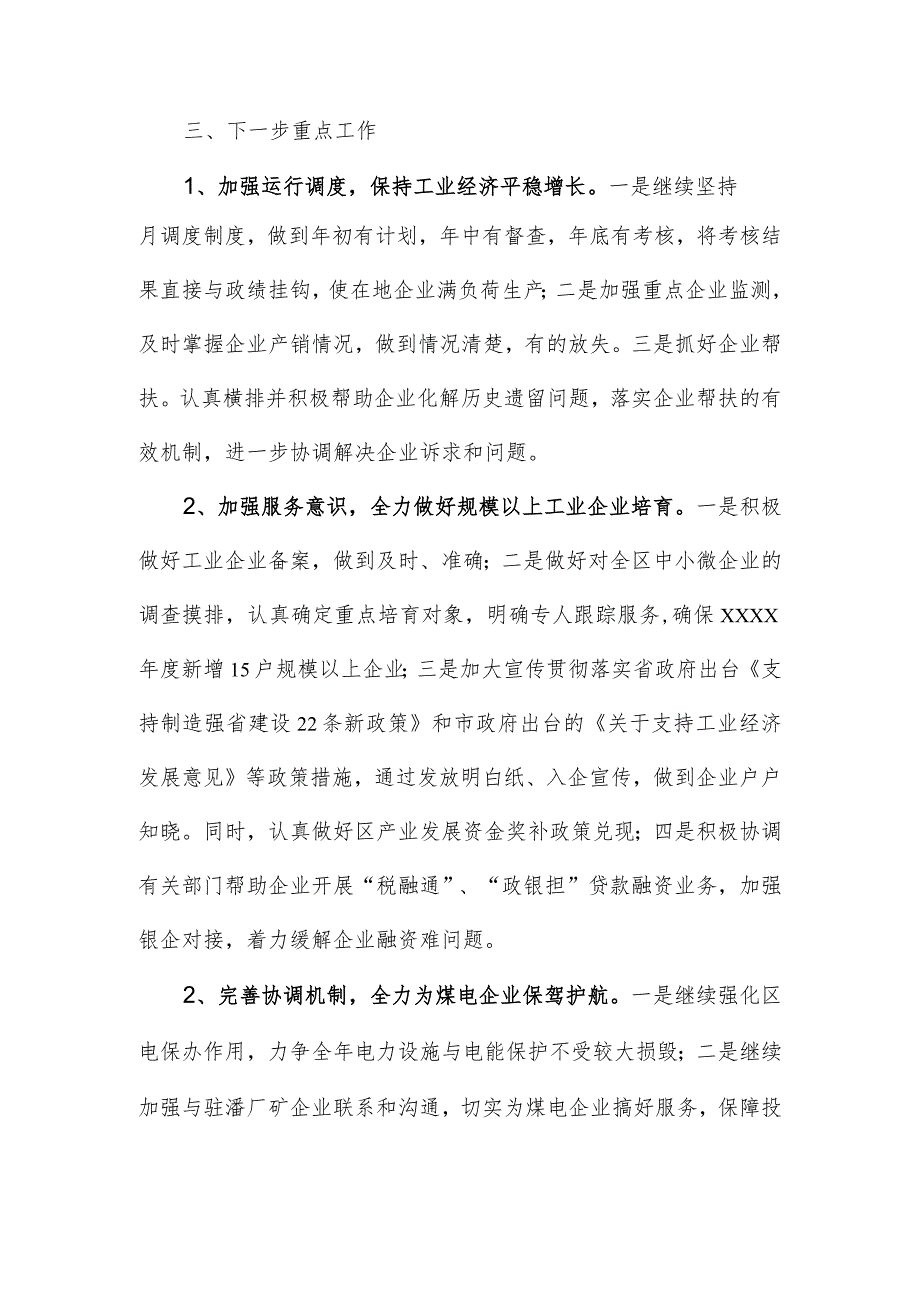 三、下一步重点工作
1、加强运行调度，保持工业经济平稳增长。一是继续坚持
月调度制度，做到年初有计划，年中有督查，年底有考核，将考核结
果直接与政绩挂钩，使在地企业满负荷生产；二是加强重点企业监测，
及时掌握企业产销情况，做到情况清楚，有的放失。三是抓好企业帮
扶。认真横排并积极帮助企业化解历史遗留问题，落实企业帮扶的有
效机制，进一步协调解决企业诉求和问题。
2、加强服务意识，全力做好规模以上工业企业培育。一是积极
做好工业企业备案，做到及时、准确；二是做好对全区中小微企业的
调查摸排，认真确定重点培育对象，明确专人跟踪服务,确保 XXXX
年度新增 15 户规模以上企业；三是加大宣传贯彻落实省政府出台《支
持制造强省建设 22 条新政策》和市政府出台的《关于支持工业经济
发展意见》等政策措施，通过发放明白纸、入企宣传，做到企业户户
知晓。同时，认真做好区产业发展资金奖补政策兑现；四是积极协调
有关部门帮助企业开展“税融通”、“政银担”贷款融资业务，加强
银企对接，着力缓解企业融资难问题。
2、完善协调机制，全力为煤电企业保驾护航。一是继续强化区
电保办作用，力争全年电力设施与电能保护不受较大损毁；二是继续
加强与驻潘厂矿企业联系和沟通，切实为煤电企业搞好服务，保障投